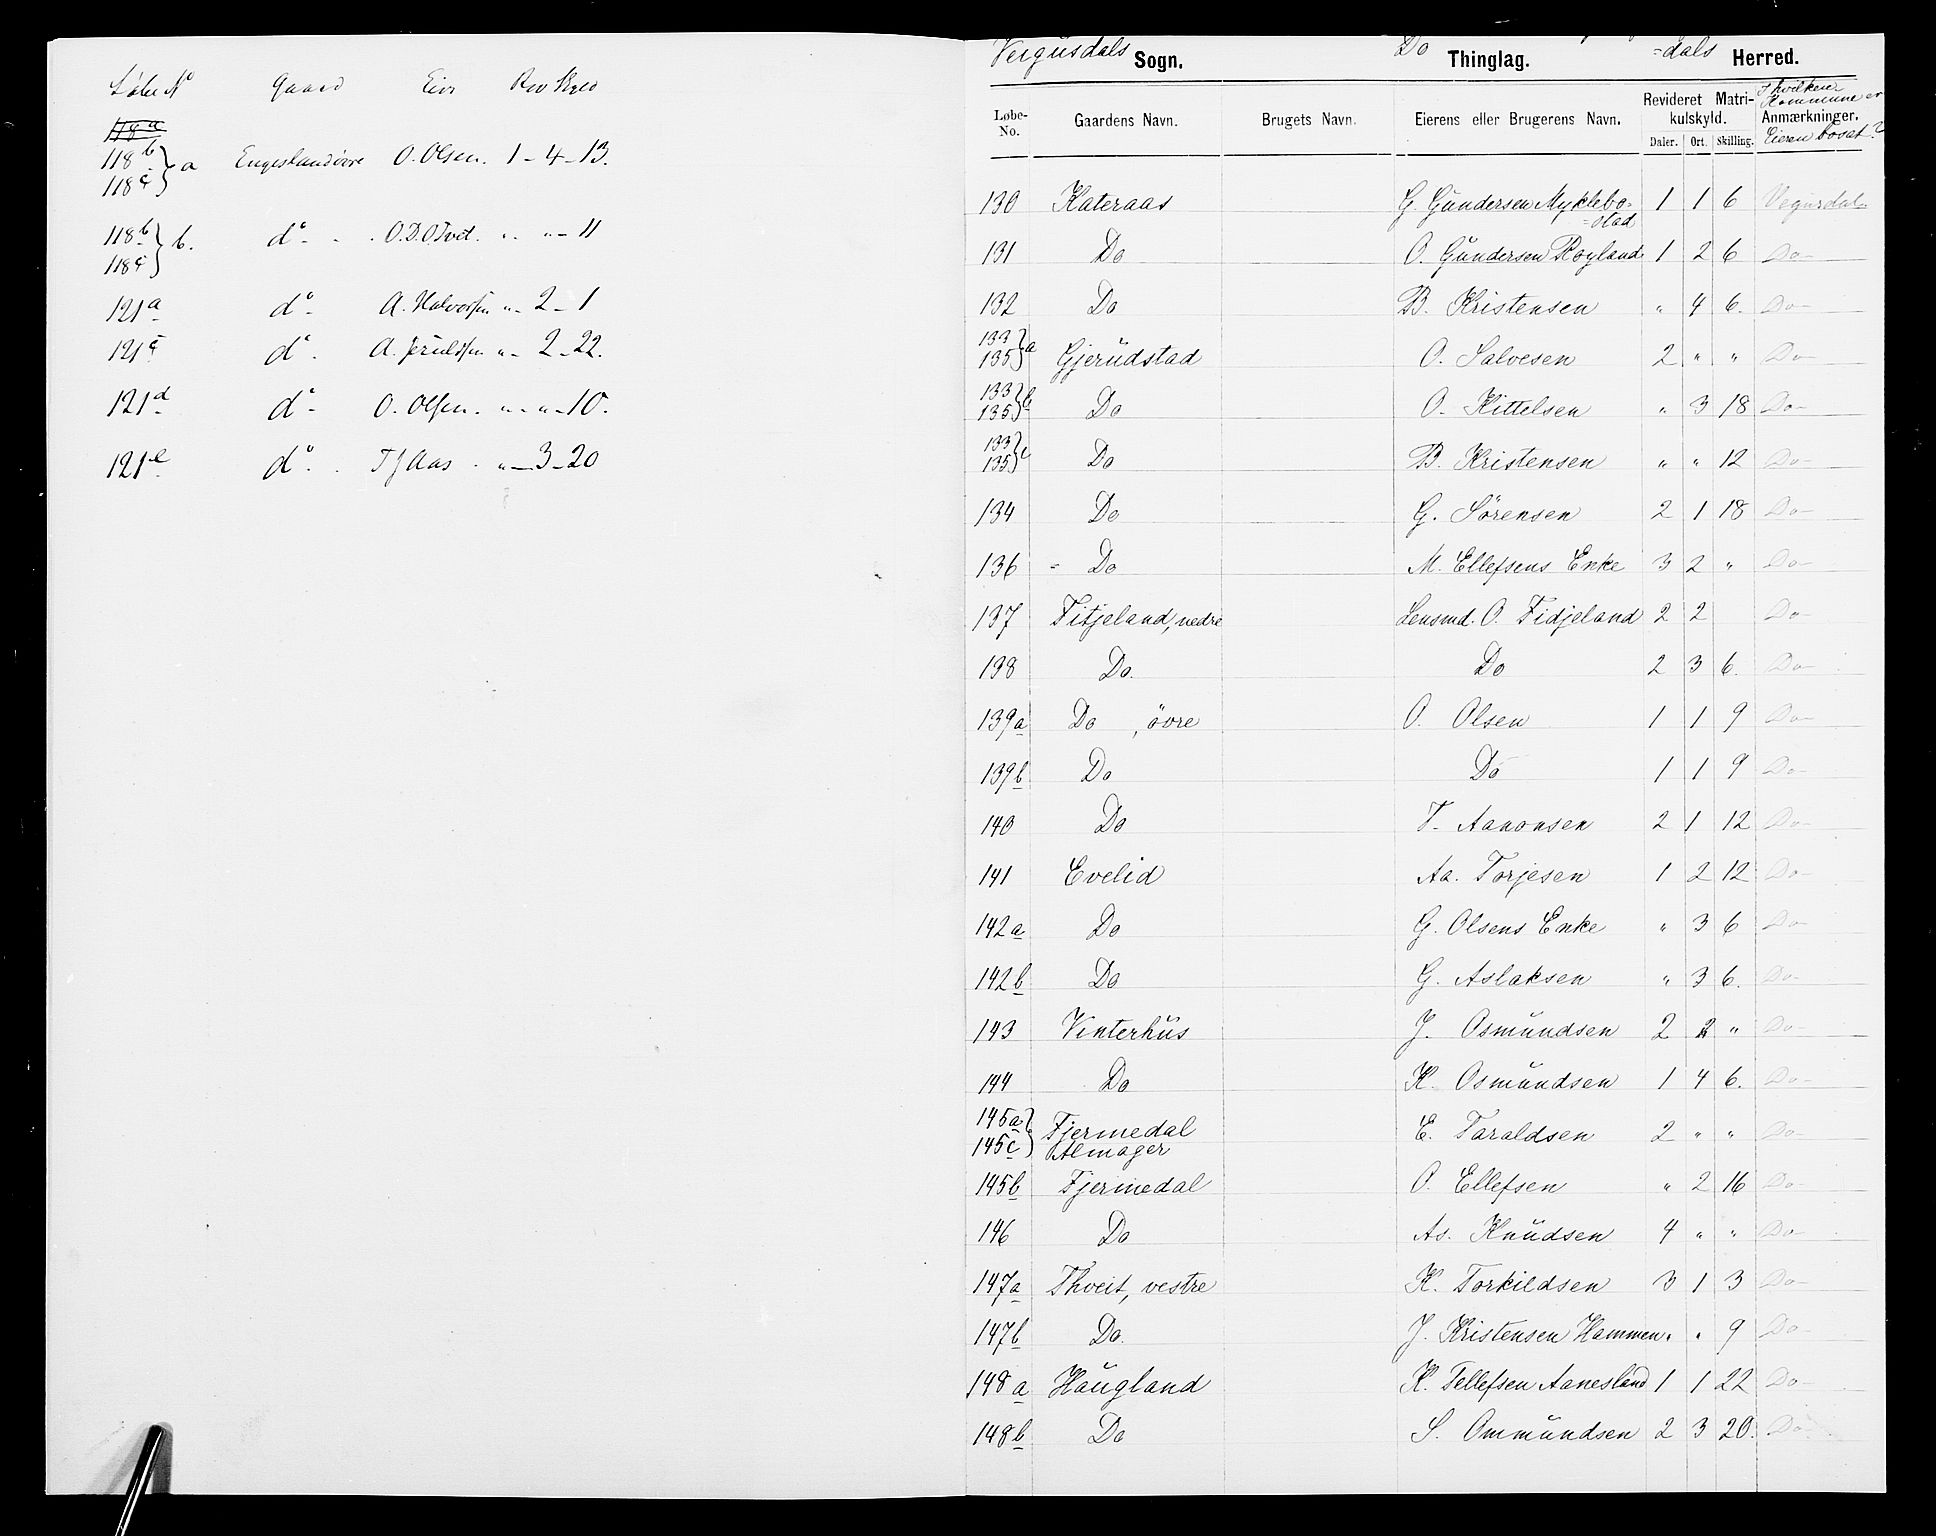 Løbe No Gaard Eier Rev Skyld
118a
118b } a Engeslandøvre O. Olsen. 1 - 4 - 13.
118c
118b } b. do - . O.D.O Tvet. " - " - 11
118c
121a do - A. Halvorsen " - 2 - 1
121c do . A. " - 2 - 22.
121d do - O. Olsen . " - " - 10.
121e do . . T J Aas . " - 3 - 20
Vegusdals Sogn. Do Thinglag. =dals Herred.
Løbe-No. Gaardens Navn. Brugets Navn. Eierens eller Brugerens Navn. Revideret Matrikulskyld. Daler. Ort. Skilling. Anmærkninger. I hvilken Kommune er Eieren bosat?
130 Kateraas G. Gundersen Myklebo=stad 1 1 6 Vegusdal
131 Do O. Gundersen Røyland 1 2 6 Do
132 Do B. Kristensen " 4 6. Do
133 135 } a Gjerudstad O. Salvesen 2 " " Do
133 135 } b Do O. Kittelsen " 3 18 Do
133 135 } c Do B. Kristensen " " 12 Do
134 Do G. Sörensen 2 1 18 Do
136 - Do M. Ellefsens Enke 3 2 " Do
137 Fitjeland, nedre Lensmd. O. Fidjeland 2 2 Do
138 Do. Do 2 3 6. Do
139a Do , övre O. Olsen 1 1 9 Do
139b Do Do 1 1 9 Do
140 Do T. Aanonsen 2 1 12 Do
141 Evelid Aa. Torjesen 1 2 12 Do
142a Do G. Olsens Enke " 3 6 Do
142b Do G. Aslaksen " 3 6. Do
143 Vinterhus J. Osmundsen 2 2 " Do
144 Do K. Osmundsen 1 4 6. Do
145a 145c } Fjermedal Almager E. Taraldsen 2 " " Do
145b Fjermedal O. Ellefsen " 2 16 Do
146 Do As. Knudsen 4 " " Do
147a Thveit, vestre K. Torkildsen 3 1 3 Do
147b Do. J. Kristensen Hammen " " 9 Do
148a Haugland K. Tellefsen Aanesland 1 1 22 Do
148b Do S. Ommundsen 2 3 20. Do